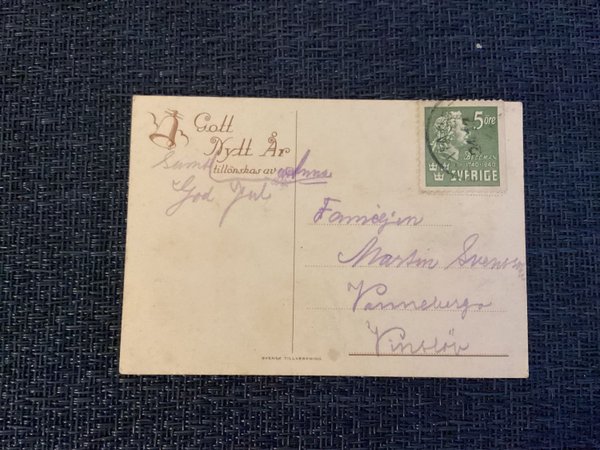 Gott
Nytt År
tillönskas av Anna
samt
God Jul
5 öre
BELLMAN
1740-1940
SVERIGE
Familjen
Martin Svensson
Vanneberga
Vinslöv
SVENSK TILLVERKNING